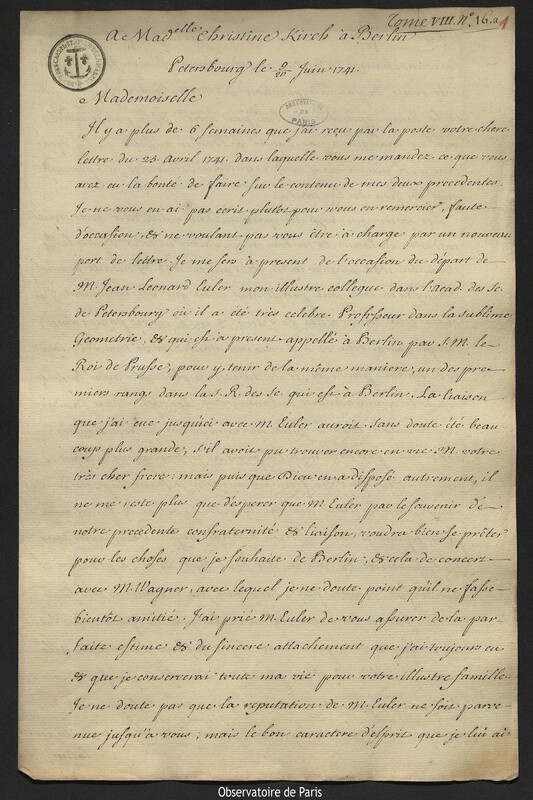 Tome VIII. N.º 16. a 1
A Mad.elle Christine Kirch à Berlin
Petersbourg le 9/20 Juin 1741.
Mademoiselle
OBSERVATOIRE
DE
PARIS
Il y a plus de 6 semaines que j'ai reçu par la poste votre chere
lettre du 25 avril 1741. dans laquelle vous me mandez ce que vous
avez eu la bonté de faire sur le contenu de mes deux precedentes
Je ne vous en ai pas ecrit plutot pour vous en remercier, faute
d'occasion, & ne voulant pas vous être à charge par un nouveau
port de lettre. Je me sers à present de l'occasion du départ de
M. Jean Leonard Euler mon illustre collegue dans l'Acad. des Sc.
de Petersbourg où il a été très celebre Professeur dans la sublime
Geometrie, & qui est à present appellé à Berlin par S. M. le
Roi de Prusse, pour y tenir de la même maniere, un des pre-
miers rangs dans la S. R. des Sc. qui est à Berlin. La liaison
que j'ai eue jusqu'ici avec M. Euler auroit sans doute été beau-
coup plus grande, s'il avoit pu trouver encore en vie M. votre
très cher frere: mais puis que Dieu en a disposé autrement, il
ne me reste plus que d'esperer que M. Euler par le souvenir de
notre precedente confraternité & liaison, voudra bien se prêter
pour les choses que je souhaite de Berlin, & cela de concert
avec M. Wagner, avec lequel je ne doute point qu'il ne fasse
bientôt amitié. J'ai prié M. Euler de vous assurer de la par-
faite estime & du sincere attachement que j'ai toujours eu
& que je conserverai toute ma vie pour votre illustre famille.
Je ne doute pas que la reputation de M. Euler ne soit parve-
nue jusqu'à vous; mais le bon caractere d'esprit que je lui ai
Observatoire de Paris